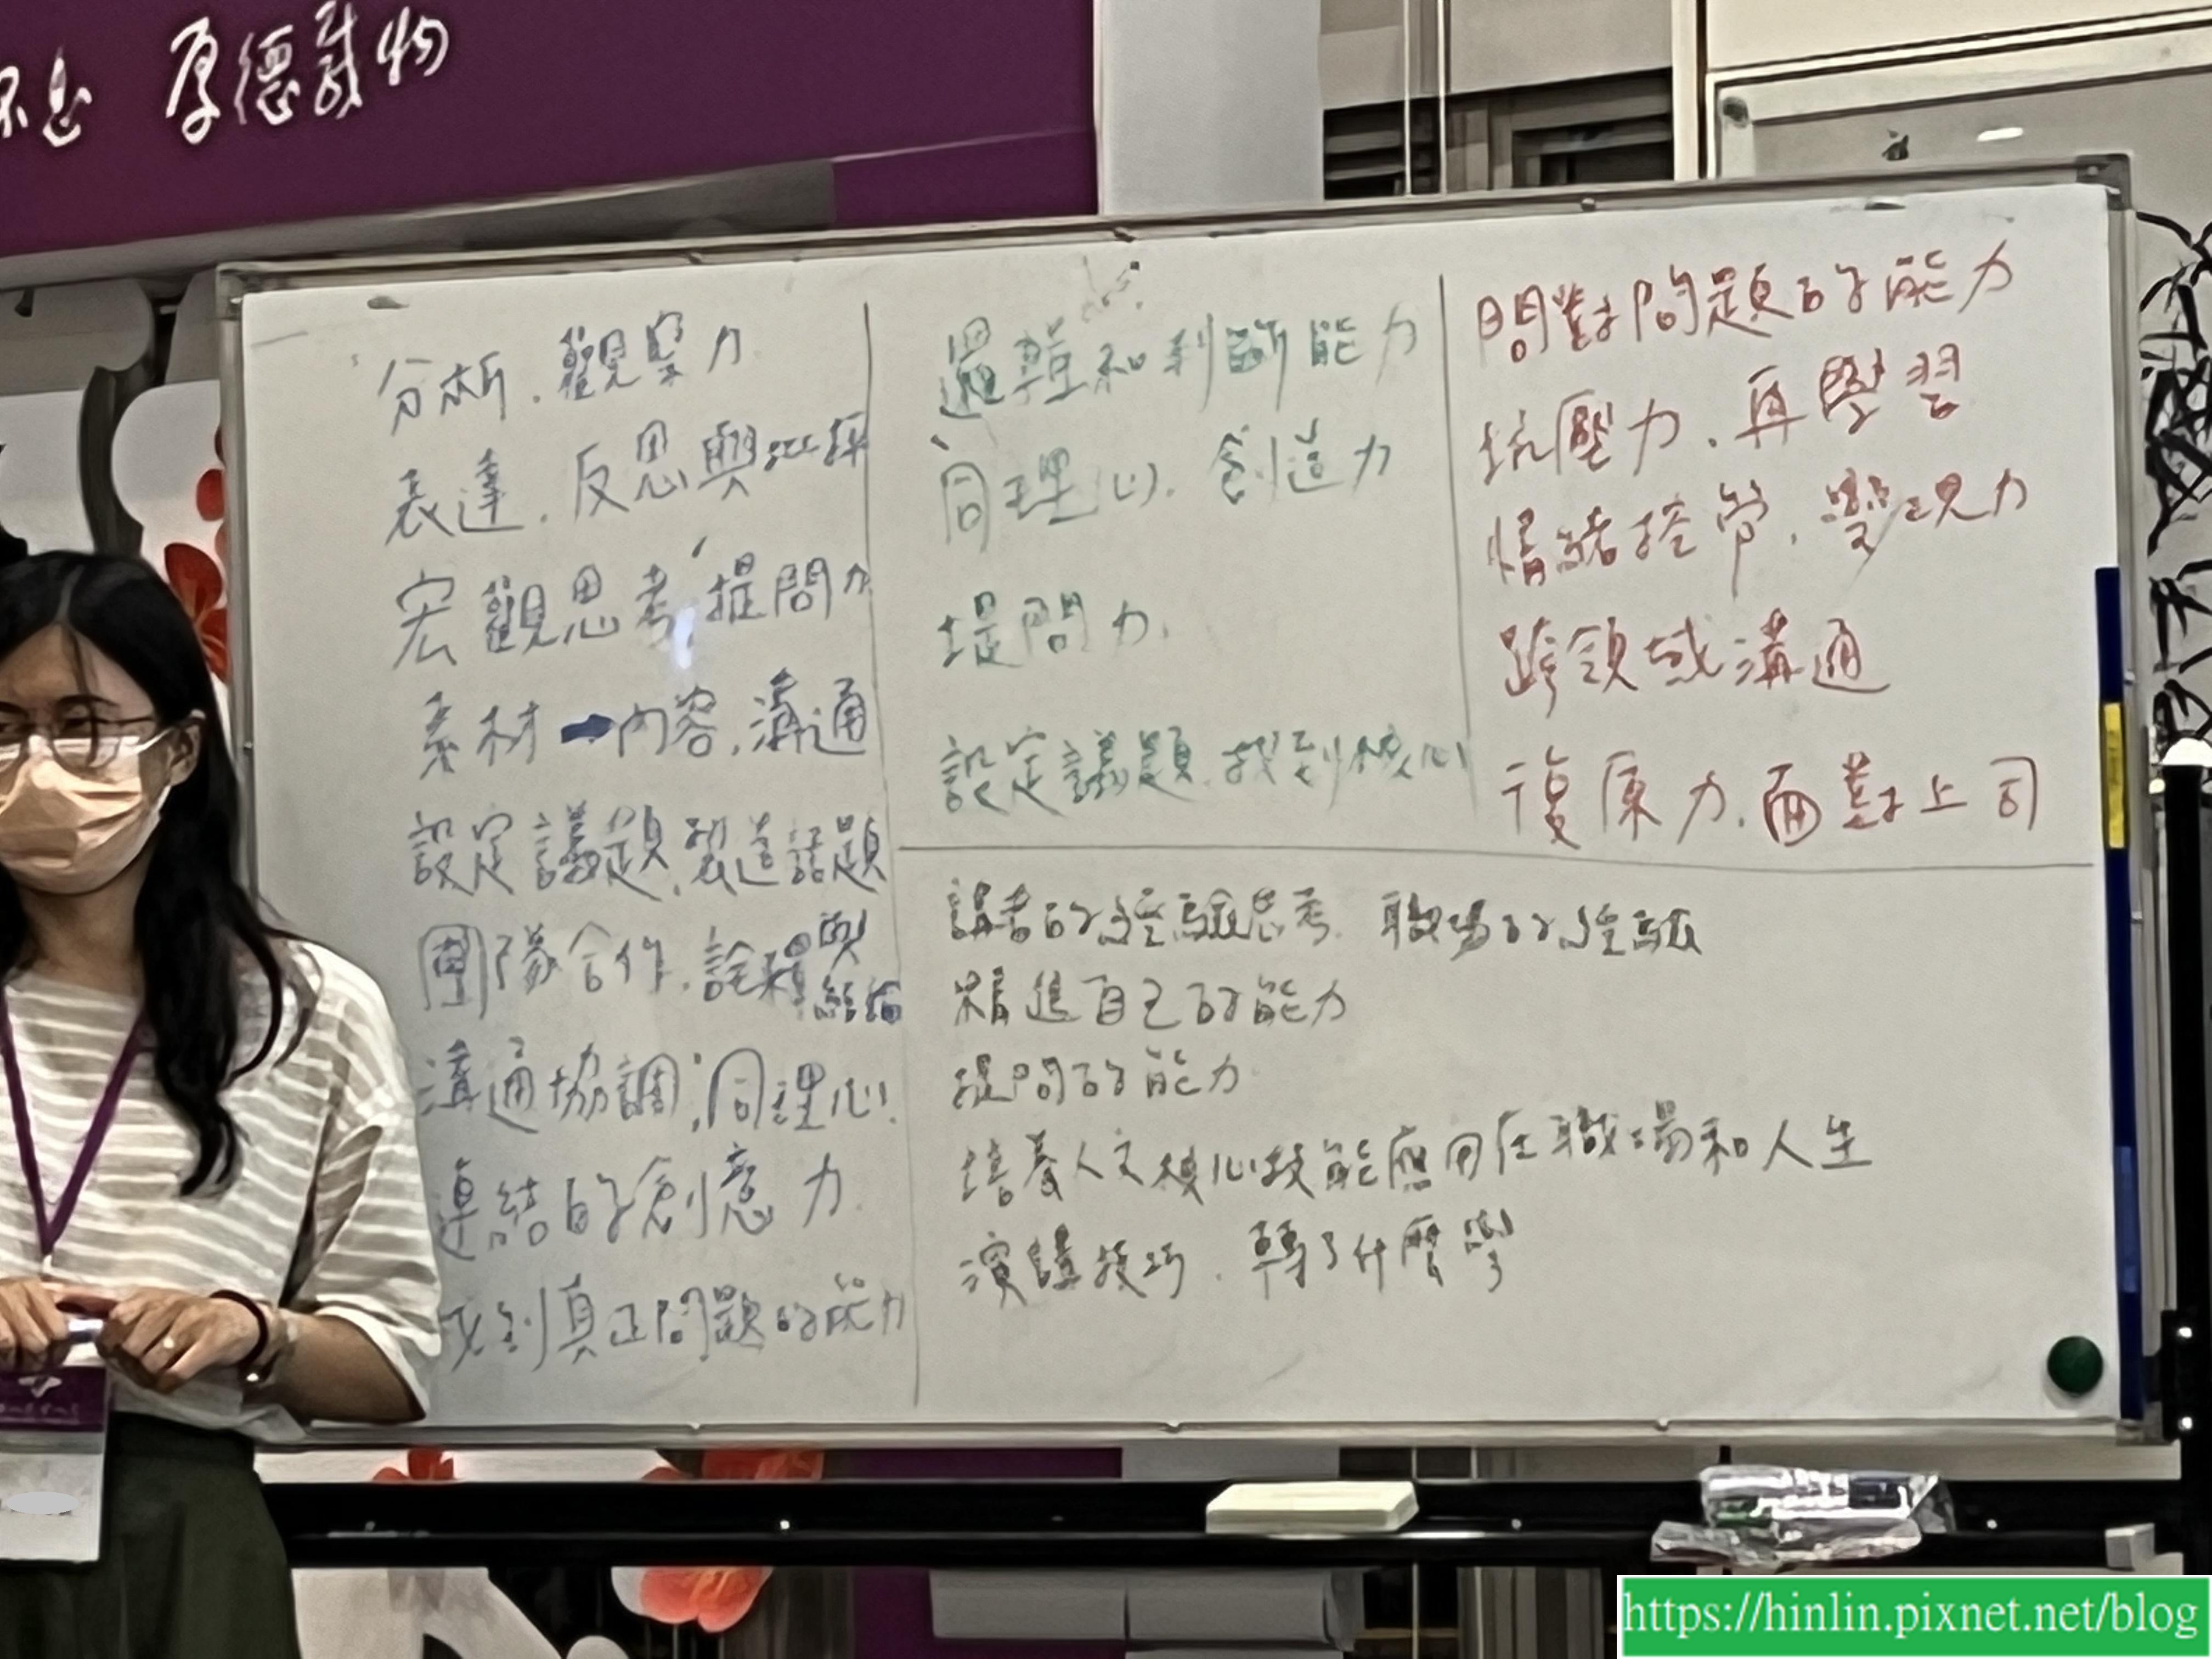 不息 厚德載物
分析、觀察力
表達、反思與
宏觀思考,提問力
素材➡內容,溝通
設定議題,製造話題
團隊合作,詮釋與
溝通協調,同理心
連結的創意力
找到真正問題的能力
邏輯和判斷能力
同理心、創造力
提問力
設定議題、找到核心
問對問題的能力
抗壓力、再學習
情緒控管、變現力
跨領域溝通
復原力、面對上司
講者的經驗思考 職場的經驗
精進自己的能力
提問的能力
培養人文核心技能應用在職場和人生
演講技巧、轉了什麼彎
https://hinlin.pixnet.net/blog